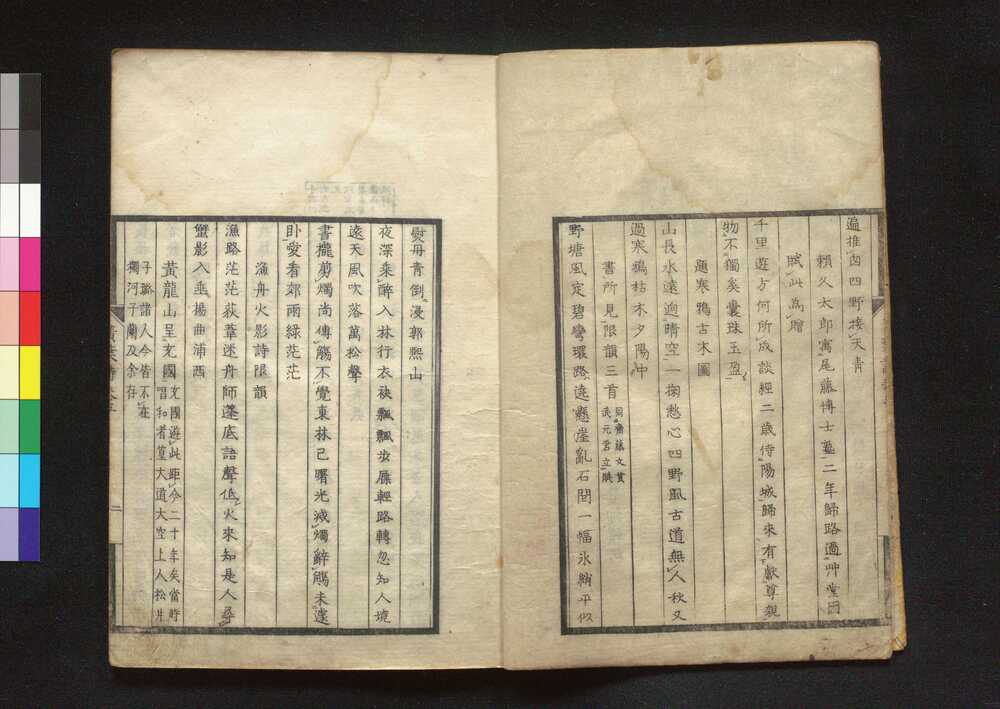 遍推四四野接天青
賴久太郎寓尾藤博士塾二年歸路過艸堂因
賦此為贈
千里遊方何所成談經二歳侍陽城歸來有獻尊親
物不獨奚囊珠玉盈
題寒鴉古木圖
山長水遠逈晴空一掬愁心四野風古道無人秋又
過寒鴉枯木夕陽中
書所見限韻三首 同齋藤文貫武元君立賦
野塘風定碧彎環路遶懸崖亂石間一幅氷綃平似
熨毋青倒浸郭熙山
夜深乘醉入林行衣袂飄飄步屧輕路轉忽知人境
遠天風吹落萬松聲
書櫳剪燭尚傳觴不覺東林已曙光減燭辭觴未遽
臥愛看郊雨綠茫茫
漁舟火影詩限韻
漁路茫茫荻葦迷舟師蓬底語聲低火來知是人尋
蟹影入垂楊曲浦西
黃龍山呈文國 文國遊此距今二十年矣當時唱和者篁大道大空上人松井
子璐諸人今皆不在獨河子蘭及余存
二